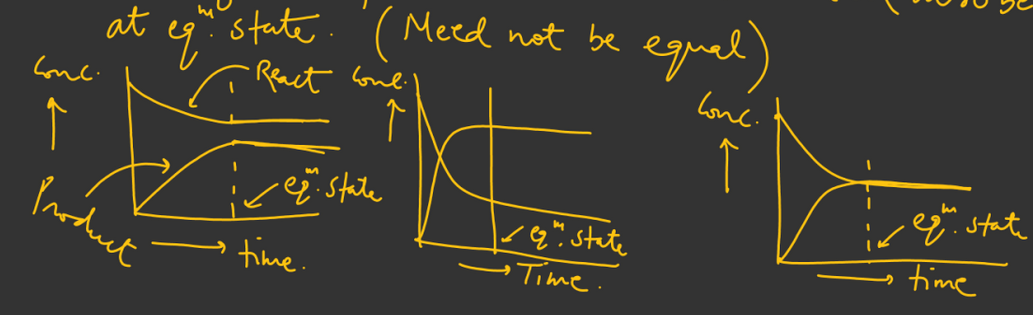 at eqᵐ. state. (Need not be equal)
Conc.
React
Product
eqᵐ. state
time.
Conc.
eqᵐ. state
Time.
Conc.
eqᵐ. state
time